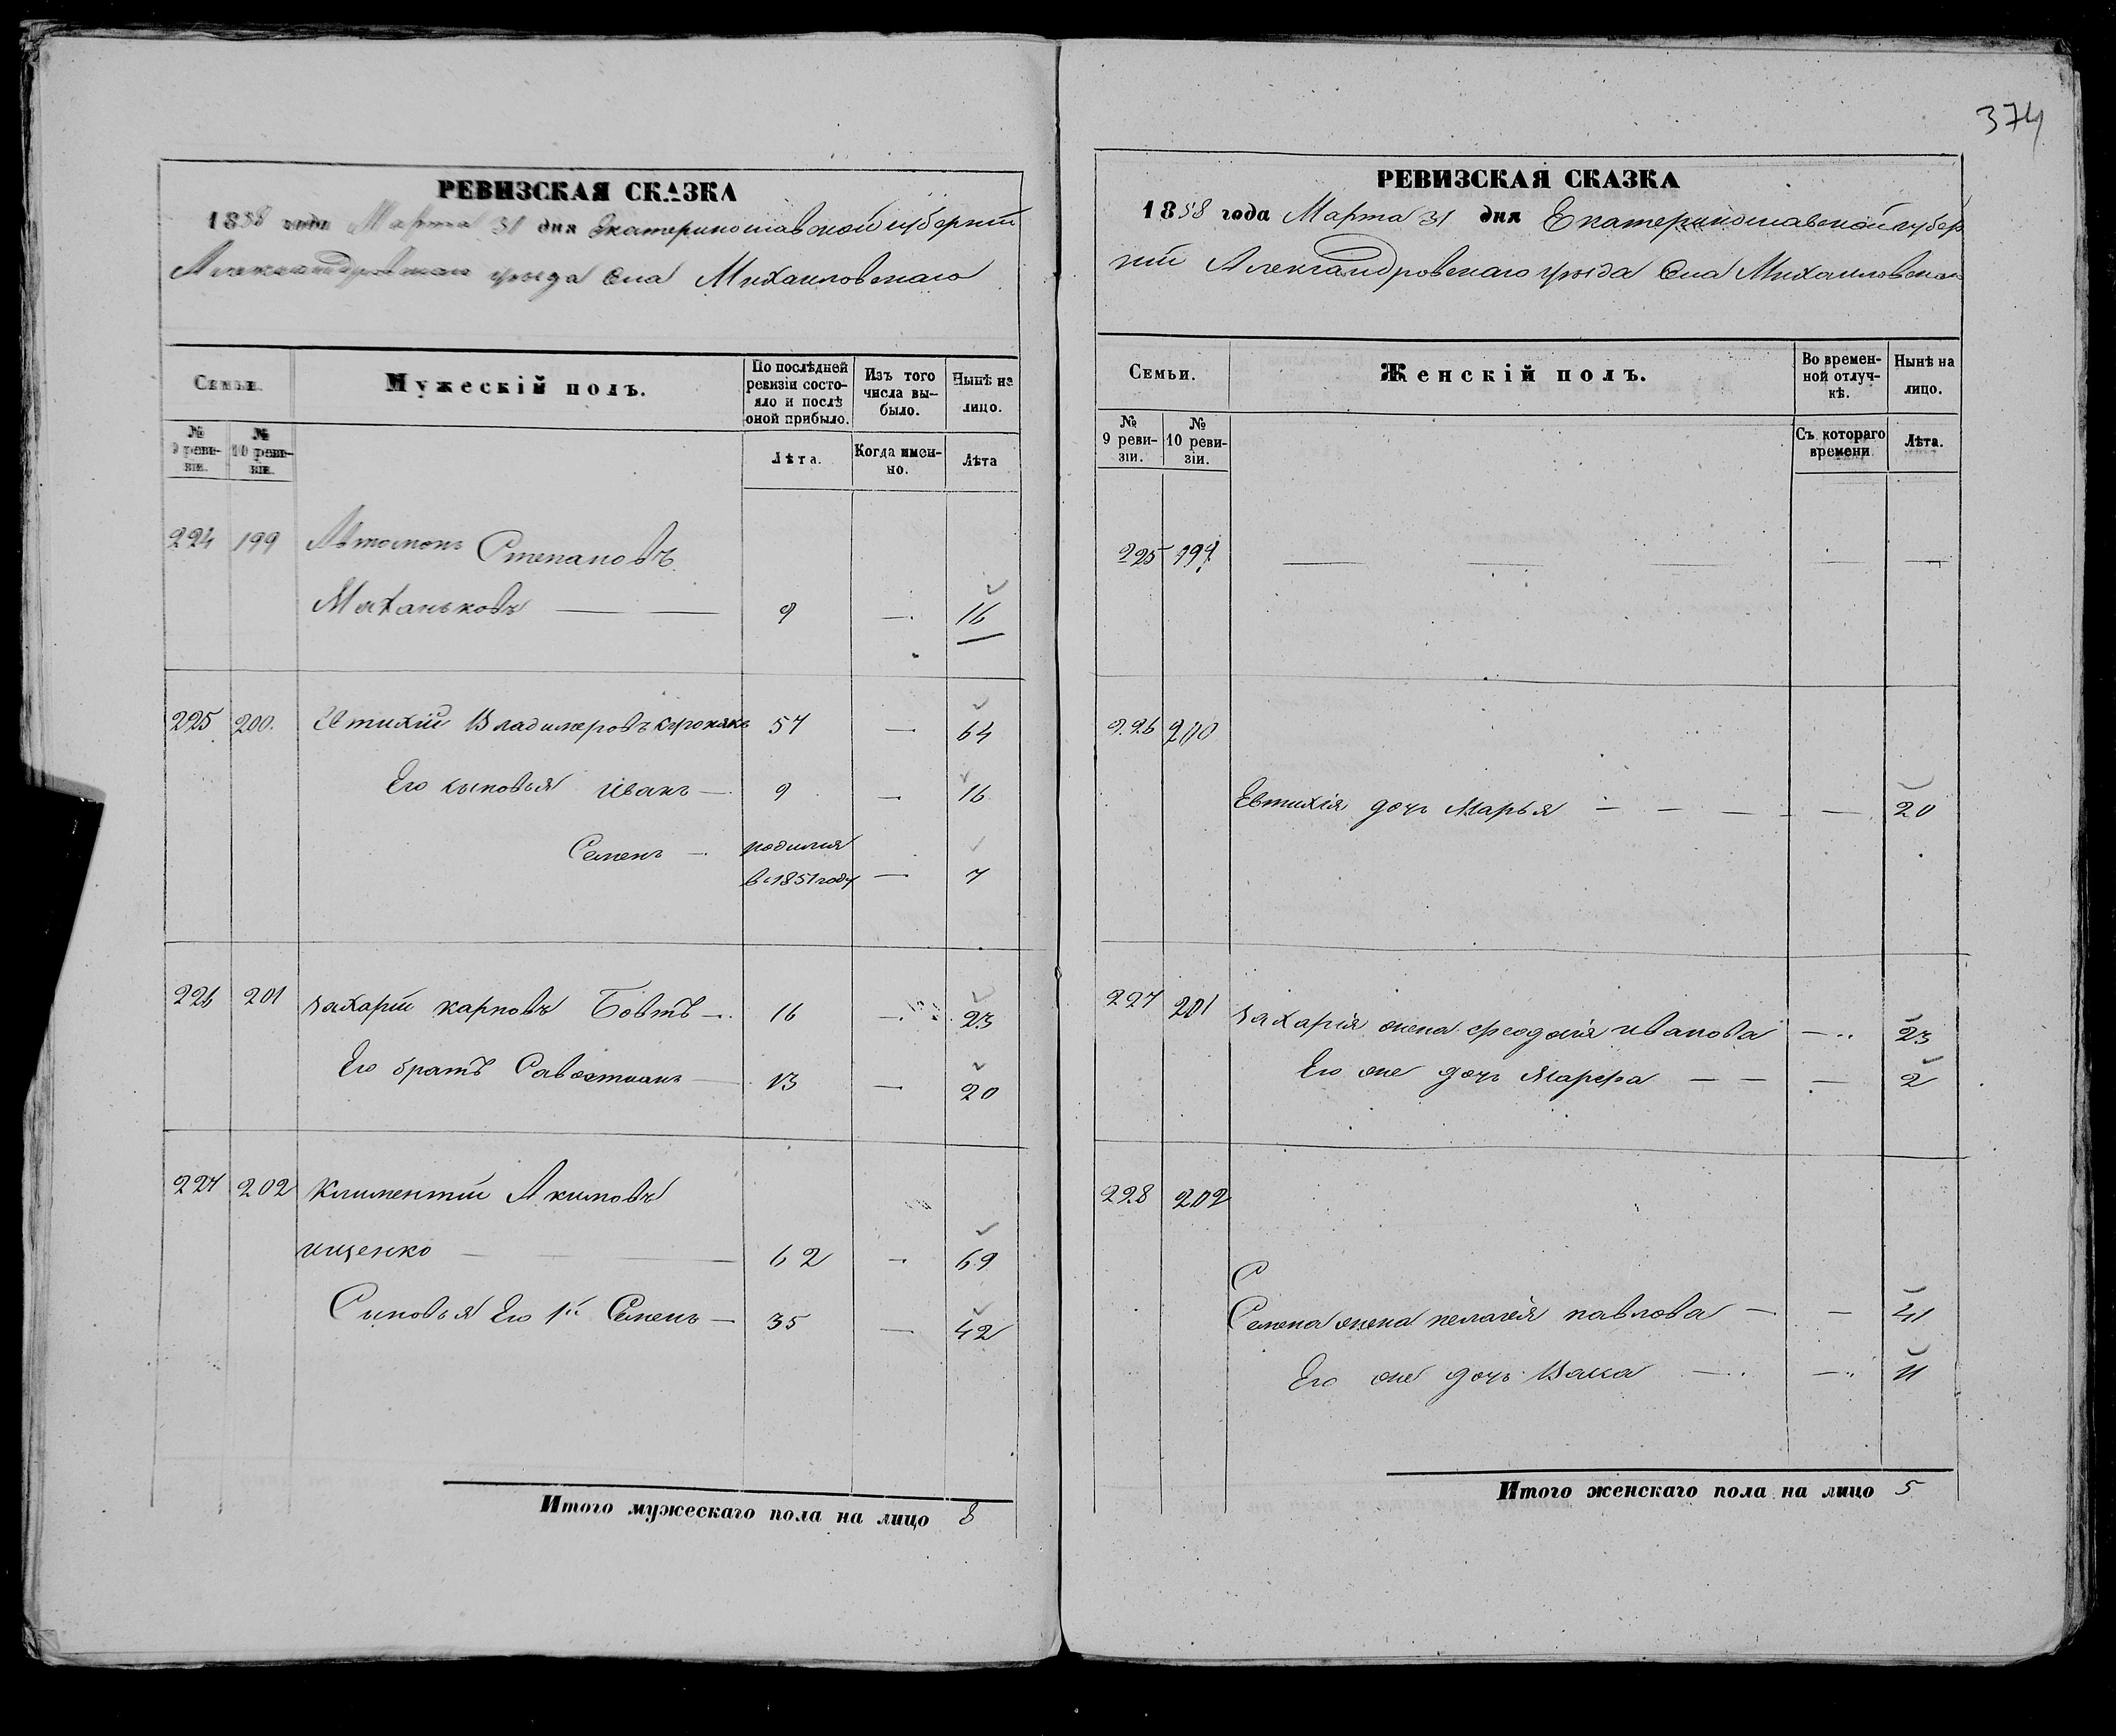 374
РЕВИЗСКАЯ СКАЗКА
1858 года Марта 31 дня Екатеринославской губерніи
Александровскаго уѣзда Села Михайловскаго
Семьи.
Мужескій полъ.
По послѣдней ревизіи состо-
яло и послѣ оной прибыло.
Изъ того числа вы-
было.
Нынѣ на лицо.
№ 9 реви-
зіи.
№ 10 реви-
зіи.
Лѣта.
Когда имен-
но.
Лѣта
224 199 Автомонъ Степановъ
Маханьковъ — — 9 — 16
225 200. Евтихій Владимеровъ 57 — 64
Его сыновья Иванъ — 9 — 16
Семенъ — родился
в 1851 году — 7
226 201 Захарій Карповъ Бовтъ — 16 — 23
Его братъ Савостианъ — 13 — 20
227 202 Климентій Акимовъ
Ищенко — — 62 — 69
Сыновья Его 1й Семенъ — 35 — 42
Итого мужескаго пола на лицо 8
РЕВИЗСКАЯ СКАЗКА
1858 года Марта 31 дня Екатеринославской губер
ніи Александровскаго уѣзда Села Михайловскаго
Семьи.
Женскій полъ.
Во времен-
ной отлуч-
кѣ.
Нынѣ на лицо.
№ 9 реви-
зіи.
№ 10 реви-
зіи.
Съ котораго времени
Лѣта.
225 199 — — — — —
226 200
Евтихія дочь Марья — — — — — 20
227 201 Захарія жена Феодосія Иванова — 23
Его же дочь Марфа — — — 2
228 202
С
Семена жена Пелагея Павлова — — 41
Его же дочь Васса — — 11
Итого женскаго пола на лицо 5